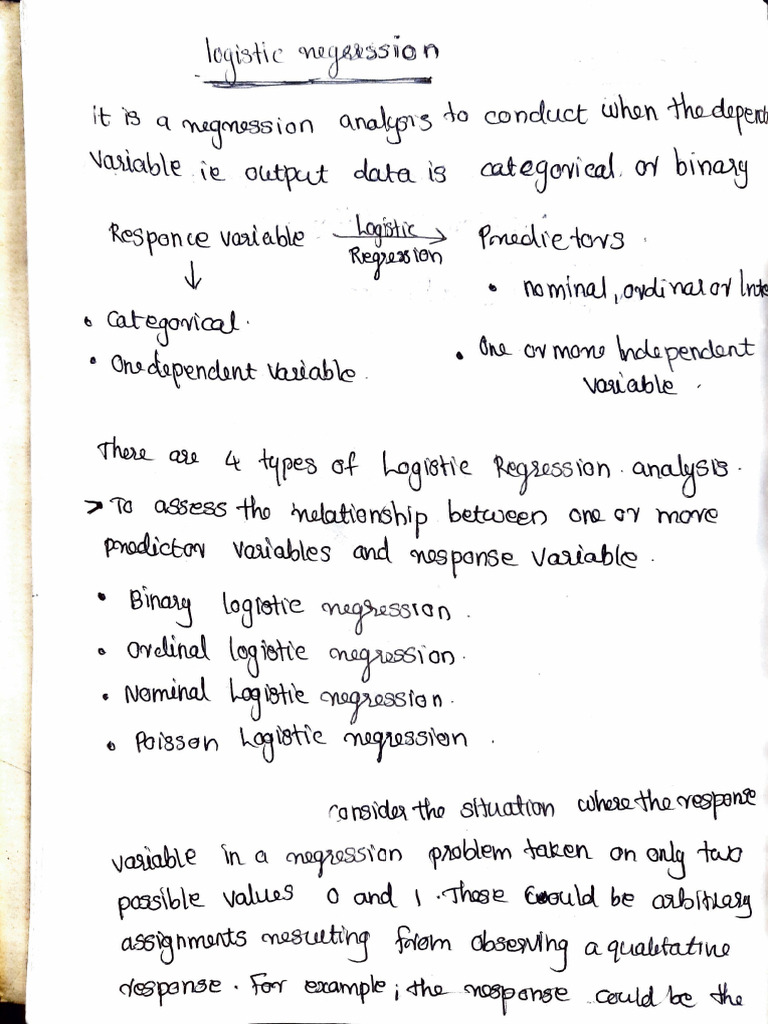 logistic regression
it is a regression analysis to conduct when the depend
variable ie output data is categorical or binary
Responce variable Logistic Regression Predictors.
• nominal, ordinal or Inte
• Categorical.
• One dependent variable.
• One or more Independent
variable.
There are 4 types of Logistic Regression analysis.
> To assess the relationship between one or more
predictor variables and response variable.
• Binary logistic regression.
• Ordinal logistic regression.
• Nominal Logistic regression.
• Poisson Logistic regression.
consider the situation where the response
variable in a regression problem taken on only two
possible values 0 and 1. These could be arbitrary
assignments resulting from observing a qualitative
response. For example, the response could be the